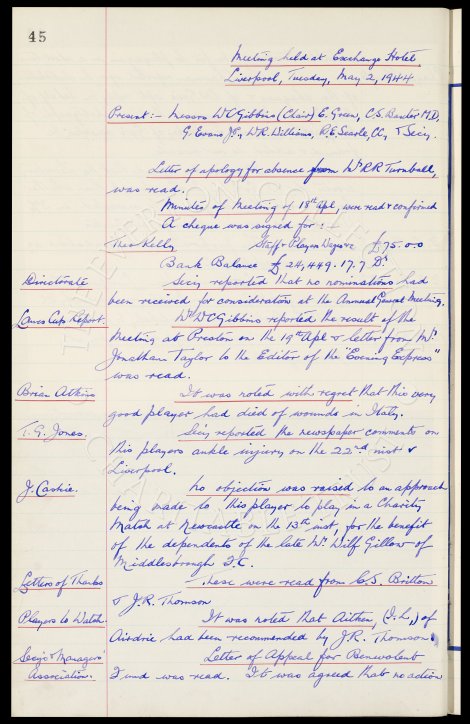 45
Meeting held at Exchange Hotel,
Liverpool, Tuesday, May 2, 1944
Present:- Messrs W C Gibbins (Chair) E. Green, C.S. Baxter M.D,
G. Evans J.P., W.R. Williams, R.E. Searle, Cllr, & Secy.
Letter of apology for absence from Mr R R Turnbull,
was read.
Minutes of Meeting of 18th Apl, were read & confirmed
A cheque was signed for:-
Theo Kelly Staff & Player Wages £75.0.0
Bank Balance £24,449.17.7 Dr
Directorate Secy reported that no nominations had
been received for consideration at the Annual General Meeting.
Lancs Cup Report. Mr W C Gibbins reported the result of the
Meeting at Preston on the 19th Apl & letter from Mr
Jonathan Taylor to the Editor of the "Evening Express"
was read.
Brian Atkins It was noted with regret that this very
good player had died of wounds in Italy.
T.G. Jones. Secy reported the newspaper comments on
this players ankle injury on the 22nd inst &
Liverpool.
J. Caskie. No objection was raised to an approach
being made to this player to play in a Charity
Match at Newcastle on the 13th inst, for the benefit
of the dependents of the late Mr Wilf Gillow of
Middlesbrough F.C.
Letters of Thanks These were read from C.S. Britton
& J.R. Thomson
Players to Watch. It was noted that Aitken, (I.L.,) of
Airdrie had been recommended by J.R. Thomson.
Secy's & Managers' Letter of Appeal for Benevolent
Association. Fund was read. It was agreed that no action